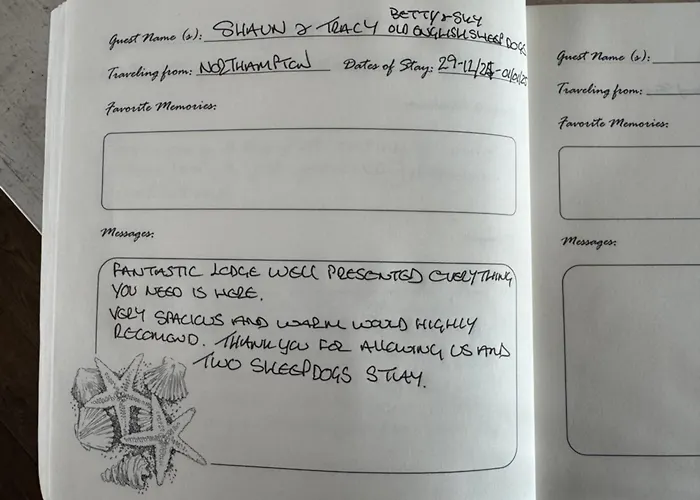 BETTY & SKY
Guest Name (s): SHAUN & TRACY OLD ENGLISH SHEEP DOGS
Traveling from: NORTHAMPTON Dates of Stay: 29-12/24-01/01/25
Favorite Memories:
Messages:
FANTASTIC LODGE WELL PRESENTED EVERYTHING
YOU NEED IS HERE.
VERY SPACIOUS AND WARM WOULD HIGHLY
RECOMEND. THANK YOU FOR ALLOWING US AND
TWO SHEEPDOGS STAY.
Guest Name (s):
Traveling from:
Favorite Memories:
Messages: